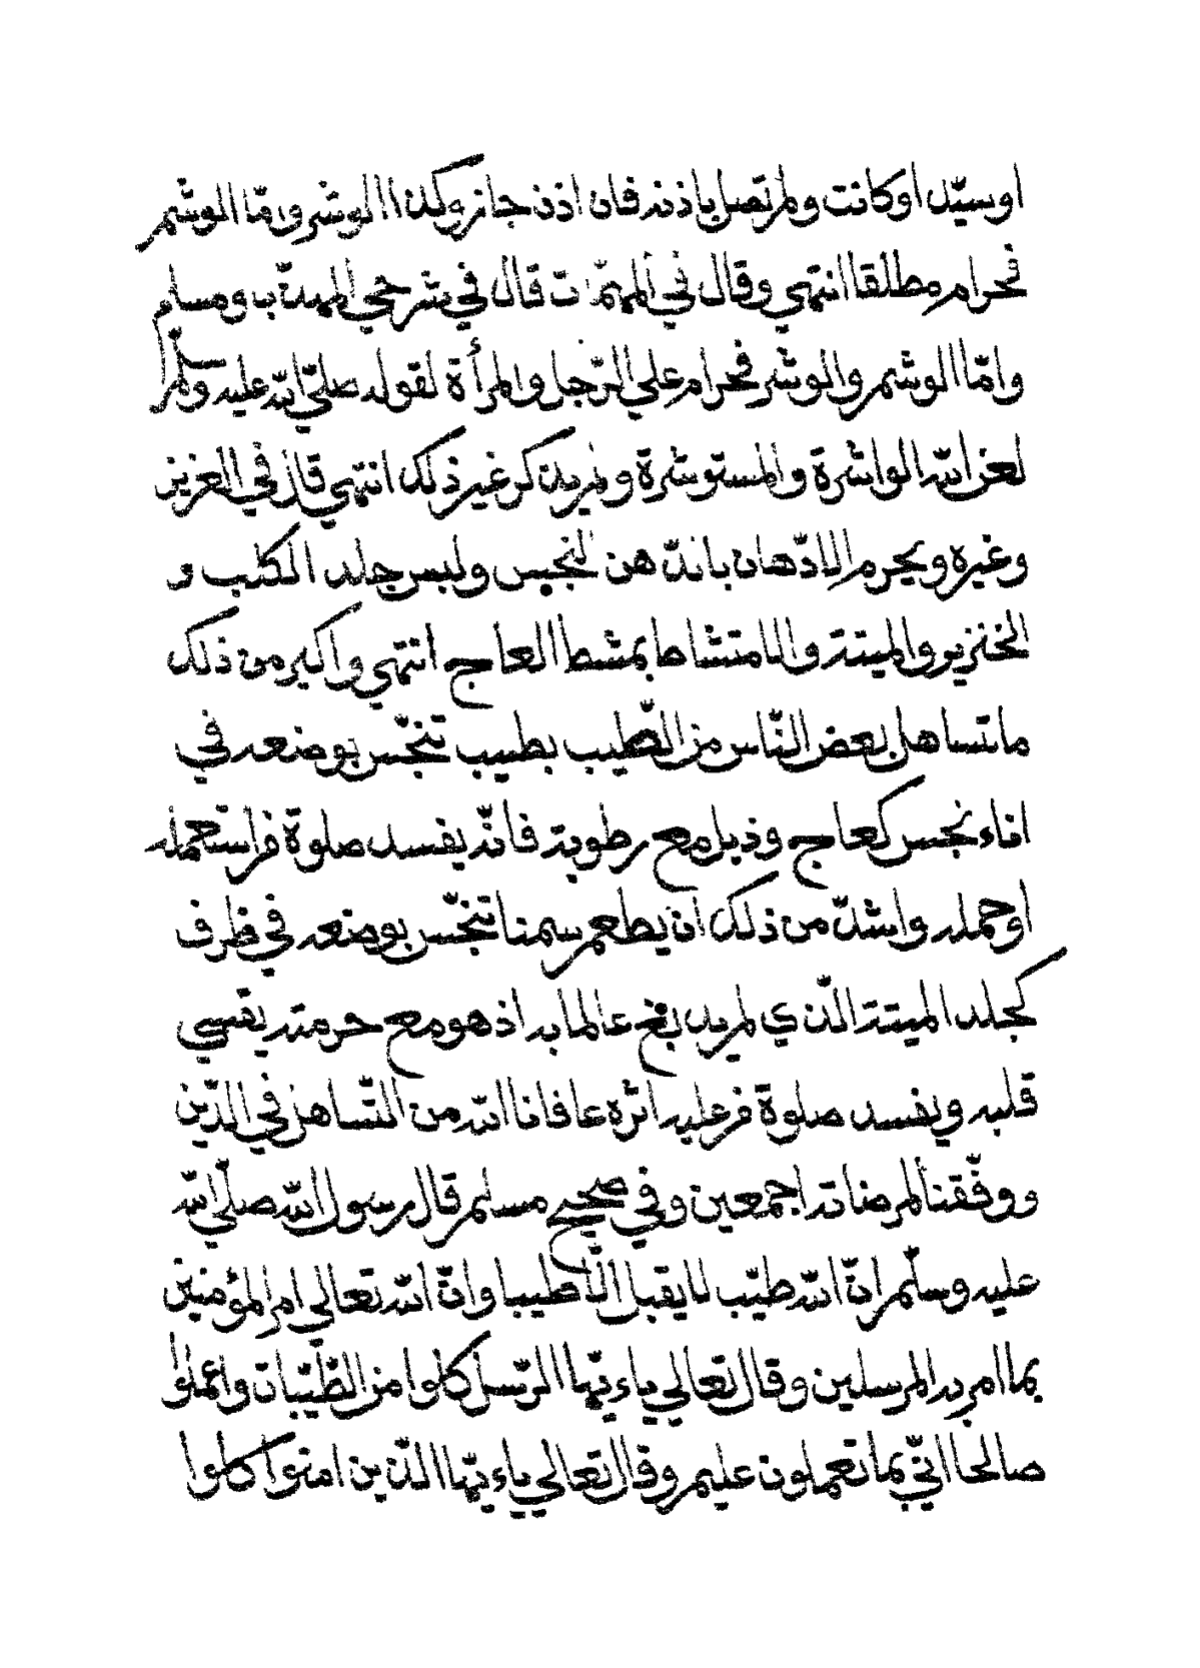 او سيّد او كانت ولم تصل باذنه فان اذن جاز وكذا الوشر وامّا الوشم
فحرام مطلقا انتهي وقال في المهمّات قال في شرحي المهذّب ومسلم
وامّا الوشم والوشر فحرام علي الرّجل والمرأة لقوله صلّي اللّه عليه وسلّم
لعن اللّه الواشرة والمستوشرة ولم يذكر غير ذلك انتهي قال في العزيز
وغيره ويحرم الادّهان بالدّهن النجس ولبس جلد الكلب و
الخنزير والميتة والامتشاط بمشط العاج انتهي واكبر من ذلك
ما تساهل بعض النّاس من الطّيب بطيب تنجّس بوضعه في
اناء نجس كعاج وذبل مع رطوبة فانّه يفسد صلوة من استعمله
او حمله واشدّ من ذلك ان يطعم سمنا تنجّس بوضعه في ظرف
كجلد الميتة الّذي لم يدبغ عالما به اذ هو مع حرمته يقسي
قلبه ويفسد صلوة من عليه اثره عافانا اللّه من التّساهل في الدّين
ووفّقنا لمرضاته اجمعين وفي صحيح مسلم قال رسول اللّه صلّي اللّه
عليه وسلّم انّ اللّه طيّب لا يقبل الّا طيبا وانّ اللّه تعالي امر المؤمنين
بما امر به المرسلين وقال تعالي ياءيّها الرّسل كلوا من الطّيّبات واعملوا
صالحا انّي بما تعملون عليم وقال تعالي ياءيّها الّذين امنوا كلوا